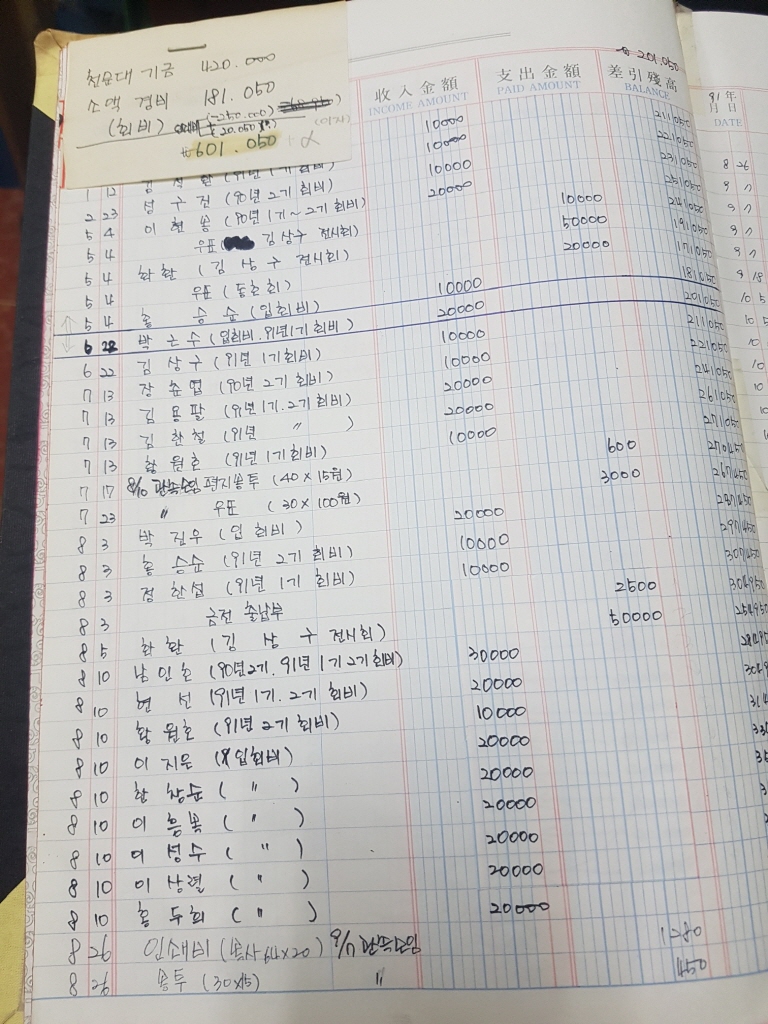 천문대 기금 420.000
소액 경비 181.050
(회비) (-250.000)
20.050
(이자)
₩601.050 α
₩201.050
收入金額 支出金額 差引殘高
INCOME AMOUNT PAID AMOUNT BALANCE
91年
月日
DATE
10000 211050
10000 221050
1 12 (90년 1기회비) 10000 231050
2 23 성구전 (90년 2기회비) 20000 251050
5 4 이현용 (90년 1기~2기회비) 10000 241050
5 4 우표 김상구 전시회) 50000 191050
5 4 화환 (김상구 전시회) 20000 171050
5 4 우표 (동호회) 10000 181050
5 4 홍승순 (입회비) 20000 201050
6 22 박근수 (입회비.91년1기회비) 10000 211050
6 22 김상구 (91년 1기회비) 10000 221050
7 13 장춘엽 (90년 2기회비) 20000 241050
7 13 김용팔 (91년 1기.2기회비) 20000 261050
7 13 김한철 (91년 〃 ) 10000 271050
7 13 황원호 (91년 1기회비) 600 270450
7 17 8/10 관측모임 편지봉투 (40×15원) 3000 267450
7 23 〃 우표 (30×100원) 20000 287450
8 3 박진우 (입회비) 10000 297450
8 3 홍승순 (91년 2기회비) 10000 307450
8 3 정한섭 (91년 1기회비) 2500 304950
8 3 금전 출납부 50000 254950
8 5 화환 (김상구 전시회)
8 10 남인호 (90년2기.91년1기2기회비) 30000
8 10 현선 (91년1기.2기회비) 20000
8 10 황원호 (91년 2기회비) 10000
8 10 이지은 (입회비) 20000
8 10 한창순 ( 〃 ) 20000
8 10 이흥복 ( 〃 ) 20000
8 10 이성수 ( 〃 ) 20000
8 10 이상렬 ( 〃 ) 20000
8 10 홍두희 ( 〃 ) 20000
8 26 인쇄비 (복사64×20) 9/7 관측모임 1280
8 26 봉투 (30×15) 〃 450
8 26
9 7
9 7
9 7
9 18
10 5
10 5